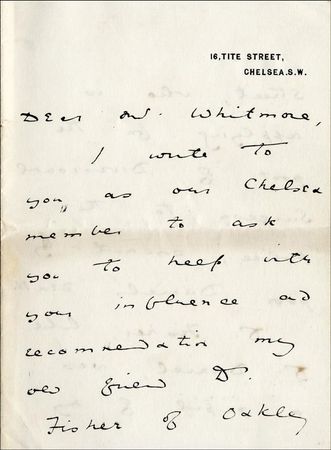 16, TITE STREET,
CHELSEA. S.W.
Dear Mr. Whitmore,
I write to
you, as our Chelsea
member to ask
you to help with
your influence and
recommendation my
old friend Dr.
Fisher of Oakley